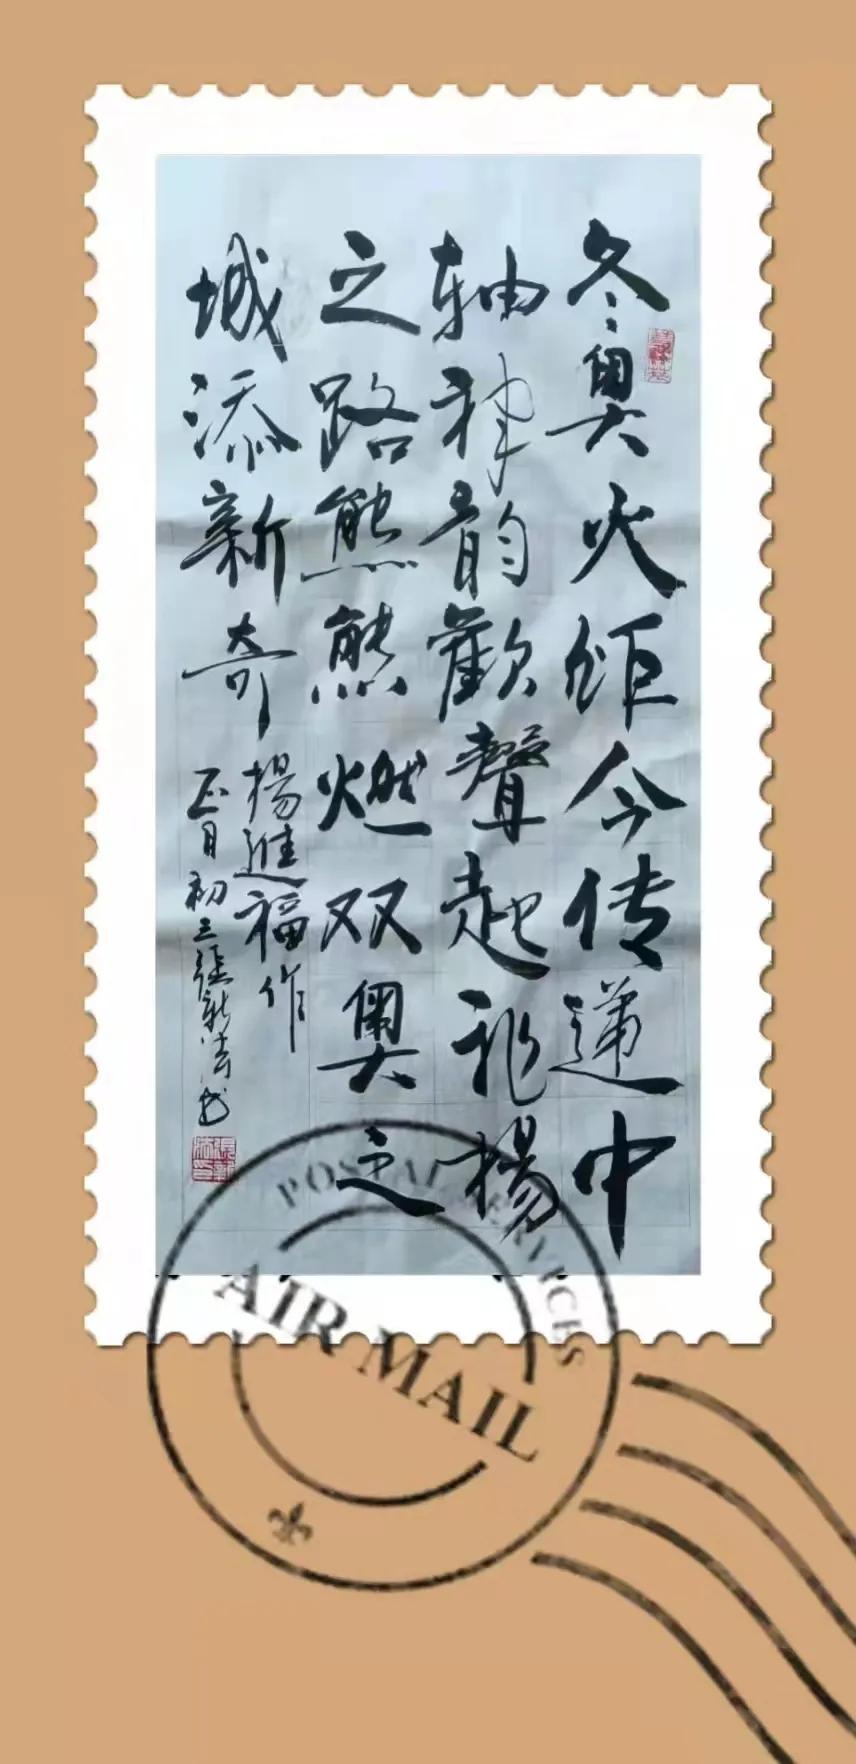 冬奥火炬今传递中
轴神韵歡聲起飛揚
之路熊熊燃双奥之
城添新奇
揚進福作
正月初三張新濤书
POSTAL SERVICES
AIR MAIL